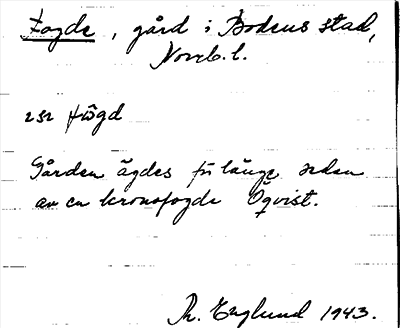 Fogde, gård i Bodens stad,
Norrb. l.
Gården ägdes för länge sedan
av en kronofogde Öqvist.
Th. Englund 1943.